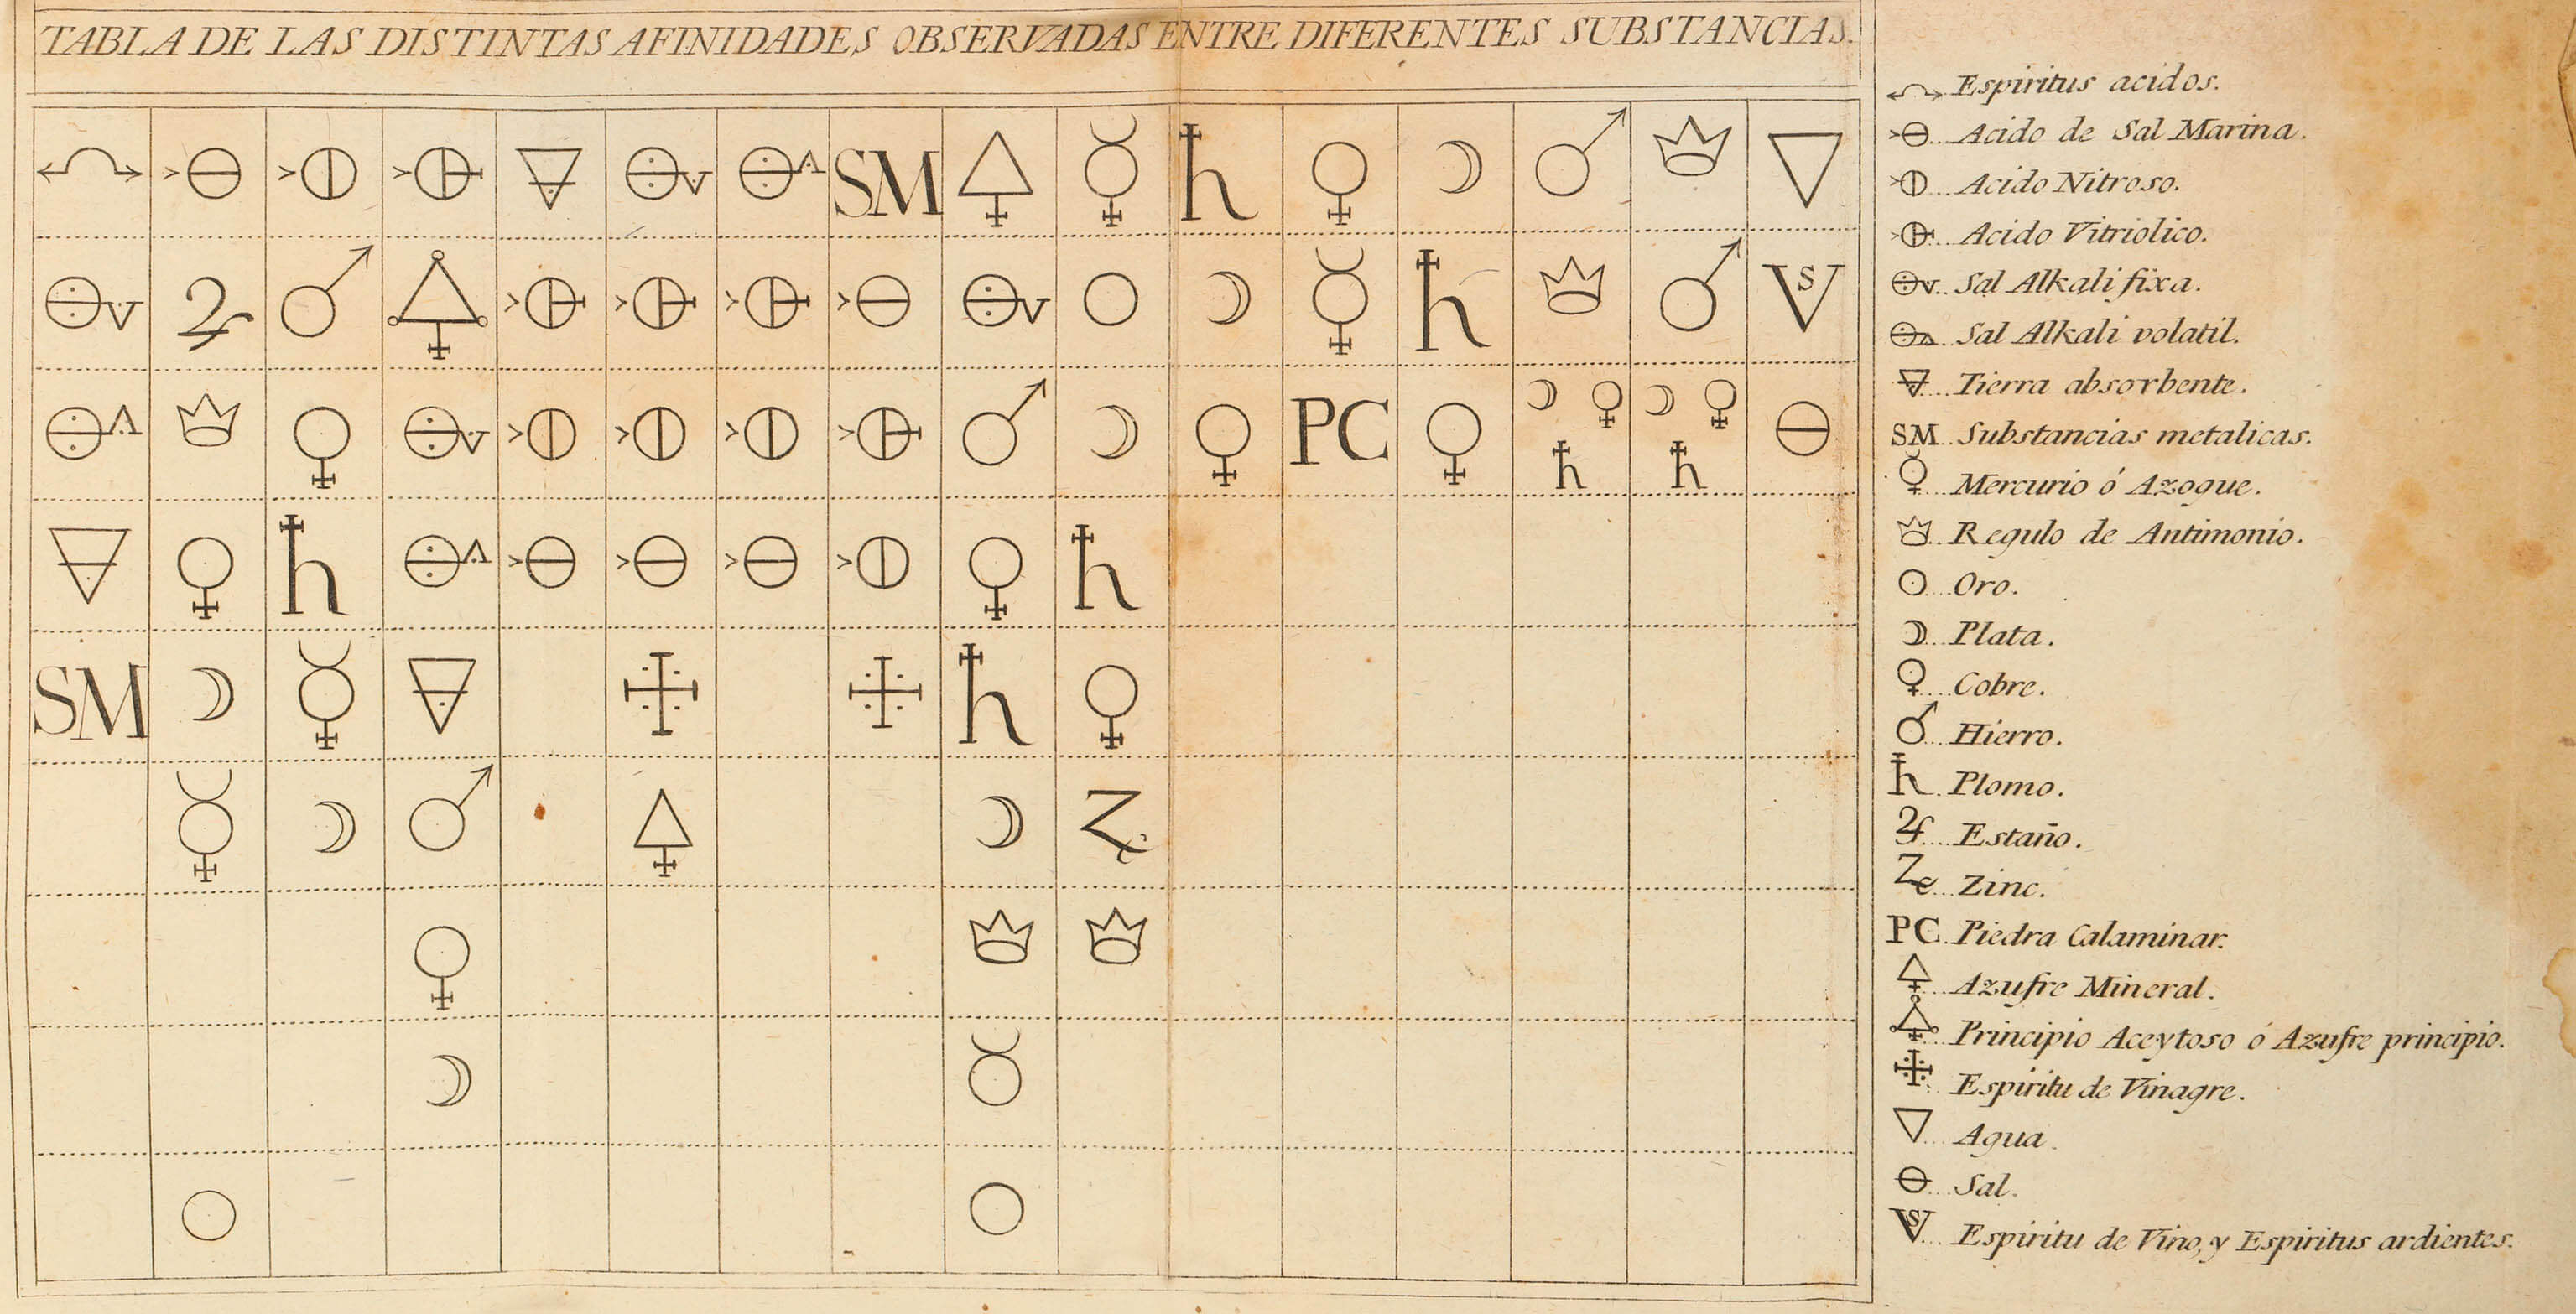 TABLA DE LAS DISTINTAS AFINIDADES OBSERVADAS ENTRE DIFERENTES SUBSTANCIAS.
SM
PC
SM
Espiritus acidos.
Acido de Sal Marina.
Acido Nitroso.
Acido Vitriolico.
Sal Alkali fixa.
Sal Alkali volatil.
Tierra absorbente.
SM Substancias metalicas.
Mercurio ó Azogue.
Regulo de Antimonio.
Oro.
Plata.
Cobre.
Hierro.
Plomo.
Estaño.
Zinc.
PC Piedra Calaminar.
Azufre Mineral.
Principio Aceytoso ó Azufre principio.
Espiritu de Vinagre.
Agua.
Sal.
Espiritu de Vino, y Espiritus ardientes.